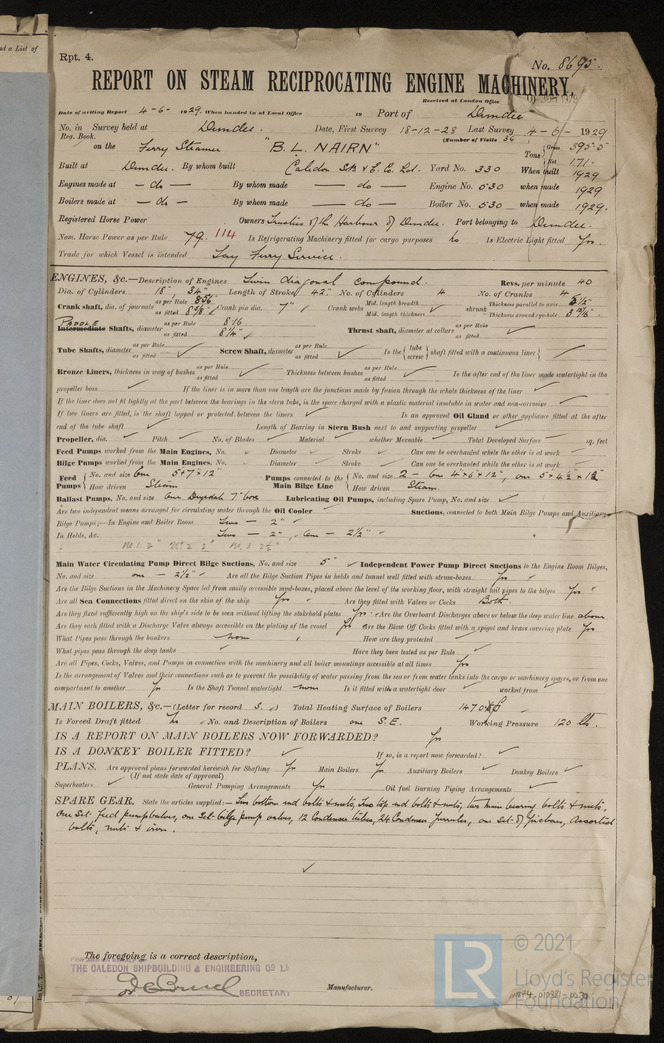 Rpt. 4.
No. 8695.
REPORT ON STEAM RECIPROCATING ENGINE MACHINERY.
Received at London Office
Date of writing Report 4-6- 1929. When handed in at Local Office Port of Dundee
No. in Survey held at Dundee. Date, First Survey 18-12-28 Last Survey 4-6- 1929
Reg. Book. (Number of Visits 36
on the Ferry Steamer "B. L. NAIRN" Tons
171.
Built at Dundee. By whom built Caledon S.B. & E. Co. Ld. Yard No. 330 When built 1929
Engines made at - do - By whom made - do - Engine No. 530 when made 1929
Boilers made at - do - By whom made - do - Boiler No. 530 when made 1929.
Registered Horse Power Owners Trustees of the Harbour of Dundee. Port belonging to Dundee.
Nom. Horse Power as per Rule 79. 114 Is Refrigerating Machinery fitted for cargo purposes No Is Electric Light fitted Yes.
Trade for which Vessel is intended Tay Ferry Service.
ENGINES, &c.—Description of Engines Twin diagonal compound. Revs. per minute 40
Dia. of Cylinders 18" 34" Length of Stroke 42" No. of Cylinders 4 No. of Cranks 4
Crank shaft, dia. of journals as per Rule as fitted Crank pin dia. 7" Crank webs Mid. length breadth Mid. length thickness shrunk Thickness parallel to axis Thickness around eye-hole
PADDLE
Intermediate Shafts, diameter as per Rule 8.16 as fitted Thrust shaft, diameter at collars as per Rule as fitted
Tube Shafts, diameter as per Rule as fitted Screw Shaft, diameter as per Rule as fitted Is the { tube screw } shaft fitted with a continuous liner {
Bronze Liners, thickness in way of bushes as per Rule as fitted Thickness between bushes as per Rule as fitted Is the after end of the liner made watertight in the
propeller boss If the liner is in more than one length are the junctions made by fusion through the whole thickness of the liner
If the liner does not fit tightly at the part between the bearings in the stern tube, is the space charged with a plastic material insoluble in water and non-corrosive
If two liners are fitted, is the shaft lapped or protected between the liners Is an approved Oil Gland or other appliance fitted at the after
end of the tube shaft Length of Bearing in Stern Bush next to and supporting propeller
Propeller, dia. Pitch No. of Blades Material whether Moveable Total Developed Surface sq. feet
Feed Pumps worked from the Main Engines, No. Diameter Stroke Can one be overhauled while the other is at work
Bilge Pumps worked from the Main Engines, No. Diameter Stroke Can one be overhauled while the other is at work
Feed Pumps { No. and size One 5"+7"×12" How driven Steam Pumps connected to the Main Bilge Line { No. and size 2 - One 4"×6"×12", one How driven Steam.
Ballast Pumps, No. and size One Drysdale 7" bore Lubricating Oil Pumps, including Spare Pump, No. and size
Are two independent means arranged for circulating water through the Oil Cooler Suctions, connected to both Main Bilge Pumps and Auxiliary
Bilge Pumps;—In Engine and Boiler Room Two - 2"
In Holds, &c. Two - 2", One - 2½"
No. 1. 2" No. 2 2" No. 3 2½"
Main Water Circulating Pump Direct Bilge Suctions, No. and size 5" Independent Power Pump Direct Suctions to the Engine Room Bilges,
No. and size one - 2½" Are all the Bilge Suction Pipes in holds and tunnel well fitted with strum-boxes Yes
Are the Bilge Suctions in the Machinery Space led from easily accessible mud-boxes, placed above the level of the working floor, with straight tail pipes to the bilges Yes
Are all Sea Connections fitted direct on the skin of the ship Yes Are they fitted with Valves or Cocks Both.
Are they fixed sufficiently high on the ship's side to be seen without lifting the stokehold plates Yes Are the Overboard Discharges above or below the deep water line above
Are they each fitted with a Discharge Valve always accessible on the plating of the vessel Yes Are the Blow Off Cocks fitted with a spigot and brass covering plate Yes
What Pipes pass through the bunkers None How are they protected
What pipes pass through the deep tanks Have they been tested as per Rule
Are all Pipes, Cocks, Valves, and Pumps in connection with the machinery and all boiler mountings accessible at all times Yes
Is the arrangement of Valves and their connections such as to prevent the possibility of water passing from the sea or from water tanks into the cargo or machinery spaces, or from one
compartment to another Yes Is the Shaft Tunnel watertight None Is it fitted with a watertight door worked from
MAIN BOILERS, &c.—(Letter for record S.) Total Heating Surface of Boilers 1470
Is Forced Draft fitted No No. and Description of Boilers one S.E. Working Pressure 120 lbs.
IS A REPORT ON MAIN BOILERS NOW FORWARDED? Yes
IS A DONKEY BOILER FITTED? If so, is a report now forwarded?
PLANS. Are approved plans forwarded herewith for Shafting Yes Main Boilers Yes Auxiliary Boilers Donkey Boilers
(If not state date of approval)
Superheaters General Pumping Arrangements Yes Oil fuel Burning Piping Arrangements
SPARE GEAR. State the articles supplied:— Two bottom end bolts & nuts, Two top end bolts & nuts, two main bearing bolts & nuts,
One Set feed pump valves, one Set bilge pump valves, 12 Condenser tubes, 24 Condenser ferrules, one Set of firebars, assorted
bolts, nuts & iron.
The foregoing is a correct description,
THE CALEDON SHIPBUILDING & ENGINEERING CO LD
SECRETARY
Manufacturer.
© 2021
LR
Lloyd's Register
Foundation